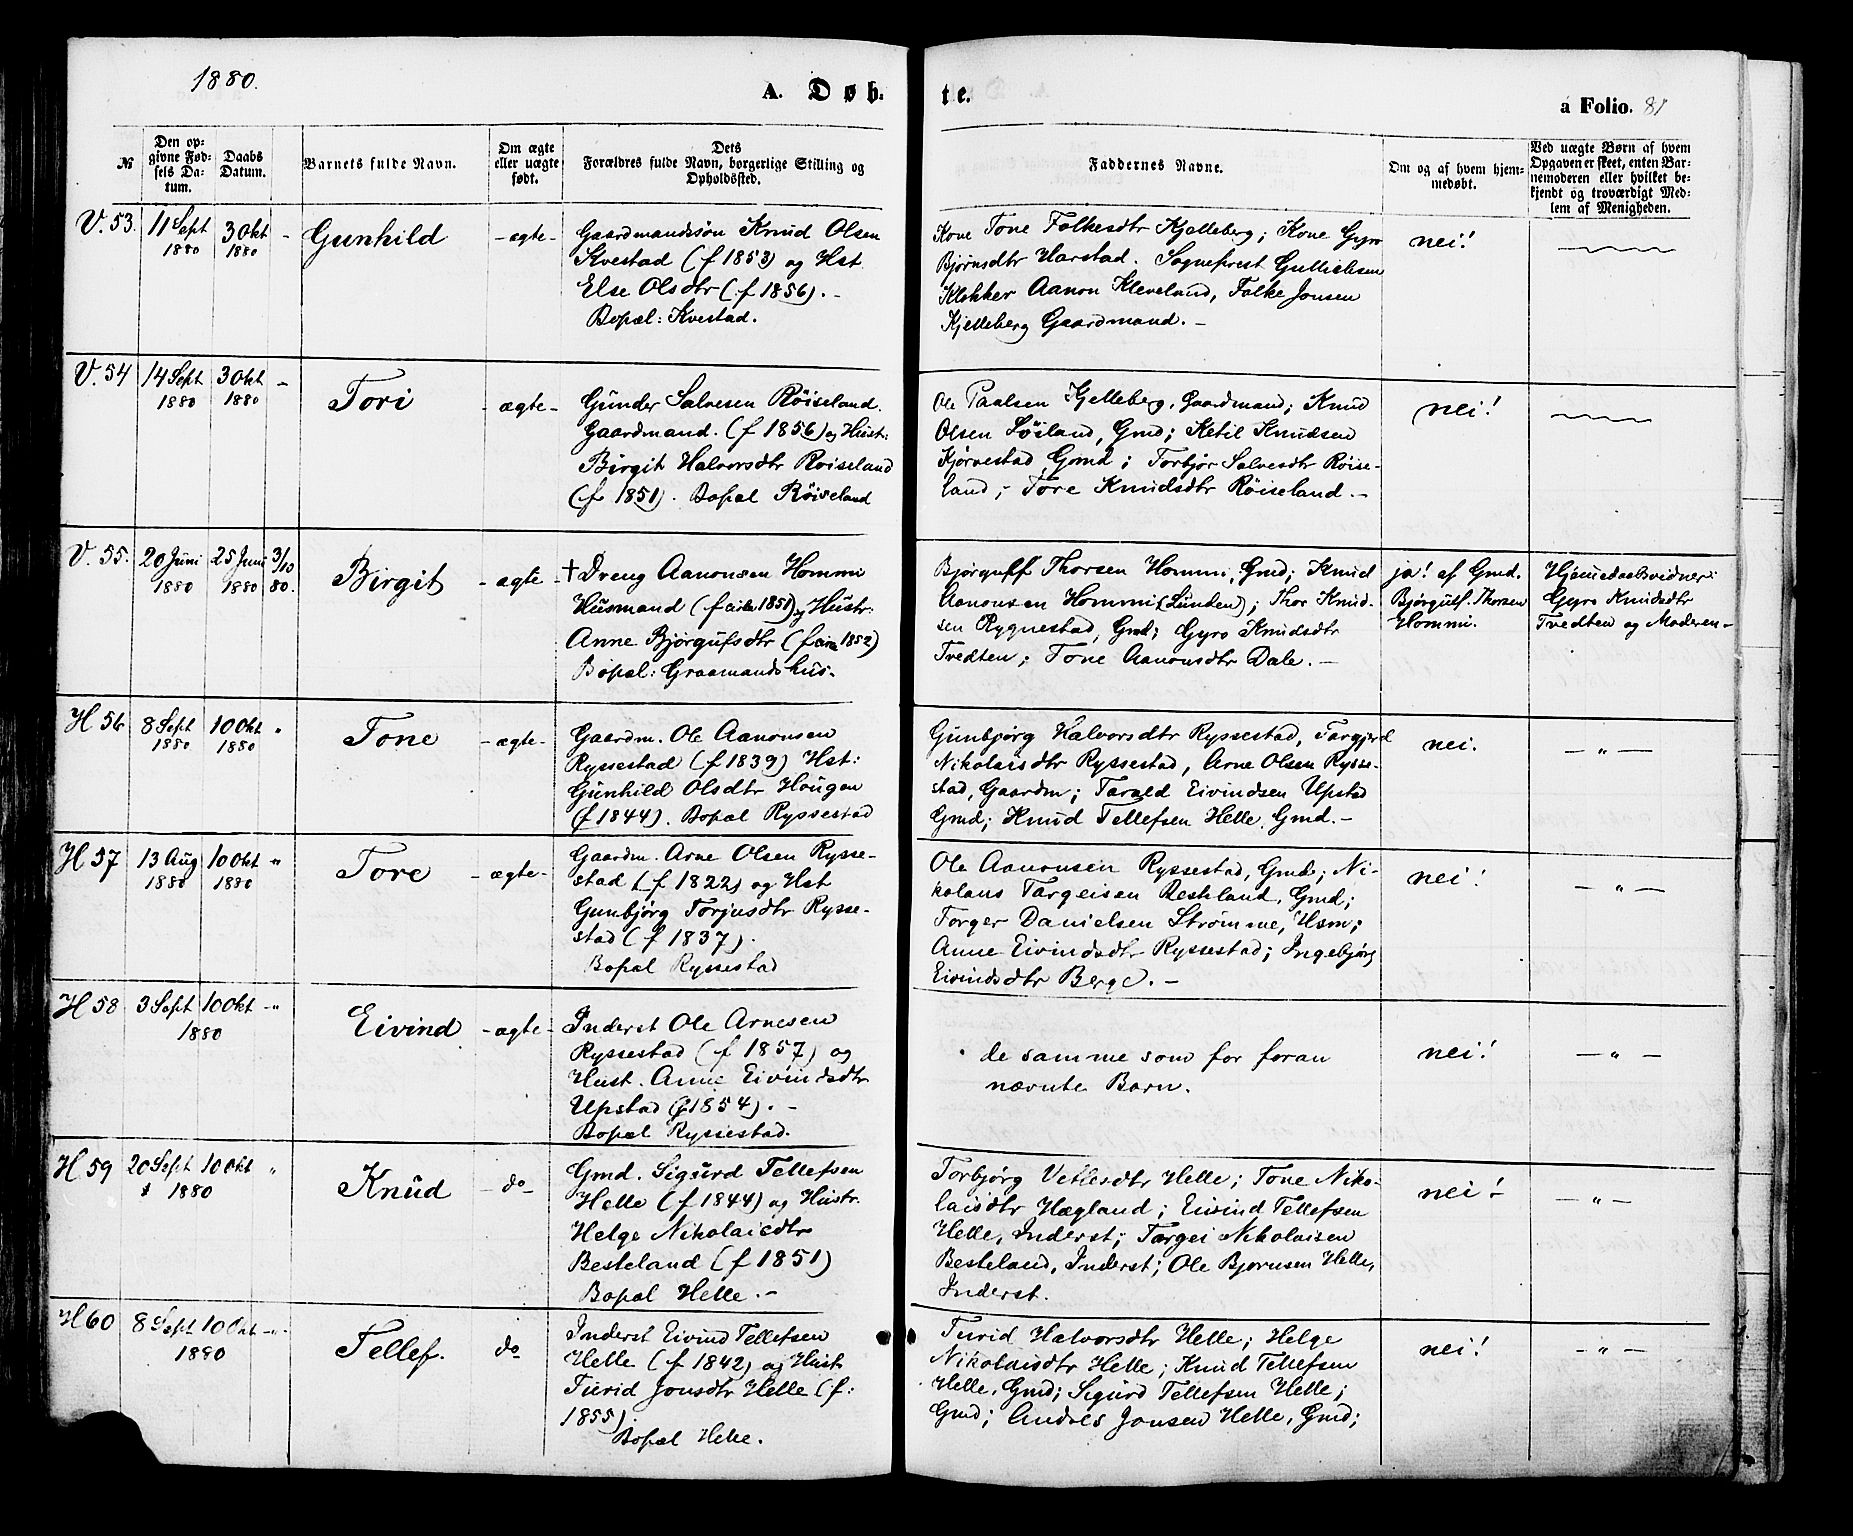 1880.
A. Døb-
te.
á Folio. 81
№
Den op-
givne Fød-
sels Da-
tum.
Daabs
Datum.
Barnets fulde Navn.
Om ægte
eller uægte
født.
Dets
Forældres fulde Navn, borgerlige Stilling og
Opholdssted.
Faddernes Navne.
Om og af hvem hjem-
medøbt.
Ved uægte Børn af hvem
Opgaven er skeet, enten Bar-
nemoderen eller hvilket be-
kjendt og troværdigt Med-
lem af Menigheden.
V. 53.
11 Sept
1880
3 Okt
1880
-
Gunhild
-ægte-
Gaardmandssøn Knud Olsen
Kvestad (f 1853) og Hst.
Else Olsdtr (f 1856). -
Bopæl: Kvestad.
Kone Tone Folkesdtr Kjelleberg; Kone Gyro
Bjørnsdtr Harstad. Sogneprest Gullicksen
Klokker Aanon Kleveland, Folke Jonsen
Kjelleberg Gaardmand. -
nei!
V. 54
14 Sept
1880
3 Okt
1880
-
Tori
-ægte-
Gunder Salvesen Röiseland.
Gaardmand. (f 1856) og Hust:
Birgit Halvorsdtr Roiseland
(f 1851). Bopæl Röiseland
Ole Paalsen Kjelleberg, Gaardmand; Knud
Olsen Løiland, Gmd; Ketil Knudsen
Kjørvestad, Gmd; Torbjør Salvesdtr Röise-
land; Tore Knudsdtr Röiseland. -
nei!
V. 55.
20 Juni
1880
25 Juni
1880
3/10
80.
Birgit
-ægte-
† Dreng Aanonsen Hommi
Husmand (f cirka 1851) og Hustr:
Anne Bjørgufsdtr (f cirka 1852)
Bopæl: Graamandshus.
Bjørguff Thorsen Hommi, Gmd; Knud
Aanonsen Hommi (Lunden); Thor Knud-
sen Rygnestad, Gmd; Gyro Knudsdtr
Tvedten; Tone Aanonsdtr Dale. -
ja! af Gmd.
Bjørgulf. Thorsen
Hommi.
Hjemedaabsvidner:
Gyro Knudsdtr
Tvedten og Moderen-
H 56
8 Sept
1880
10 Okt
1880
"
Tone
-ægte-
Gaardm. Ole Aanonsen
Ryssestad (f 1839) Hst:
Gunhild Olsdtr Hougen
(f 1844). Bopæl Ryssestad
Gunbjørg Halvorsdtr Ryssestad, Targjerd
Nikolaisdtr Ryssestad, Arne Olsen Rysse-
stad, Gaardm; Tarald Eivindsen Upstad
Gmd; Knud Tellefsen Helle, Gmd. -
nei.
- " -
H 57
13 Aug
1880
10 Okt
1880
"
Tore
-ægte-
Gaardm. Arne Olsen Rysse-
stad (f 1822) og Hst
Gunbjørg Torjusdtr Rysse-
stad (f 1837).
Bopæl Ryssestad
Ole Aanonsen Ryssestad, Gmd; Ni-
kolaus Targeisen Besteland, Gmd;
Torger Danielsen Strømme, Hsm;
Anne Eivindsdtr Ryssestad; Ingebjørg
Eivindsdtr Berge. -
nei!
- " -
H 58
3 Sept
10 Okt
1880
-"
Eivind
-ægte-
Inderst Ole Arnesen
Ryssestad (f 1857) og
Hust. Anne Eivindsdtr
Upstad (f 1854). -
Bopæl Ryssestad.
de samme som for foran
nævnte Barn.
nei!
- " -
H 59
20 Sept
10 Okt
1880
"
Knud
- do -
Gmd. Sigurd Tellefsen
Helle (f 1844) og Hustr.
Helge Nikolaisdtr
Besteland (f 1851)
Bopæl Helle. -
Torbjørg Vetlesdtr Helle; Tone Niko-
laisdtr Hægland; Eivind Tellefsen
Helle, Inderst; Targei Nikolaisen
Besteland, Inderst; Ole Bjornsen Helle,
Inderst.
nei!
- " -
H 60
8 Sept
10 Okt
1880
-"-
Tellef.
do
Inderst Eivind Tellefsen
Helle (f 1842) og Hust.
Turid Jonsdtr Helle (f:
1855)
Bopæl Helle.
Turid Halvorsdtr Helle; Helge
Nikolaisdtr Helle; Knud Tellefsen
Helle, Gmd; Sigurd Tellefsen Helle;
Gmd; Andres Jonsen Helle, Gmd;
nei!
- " -